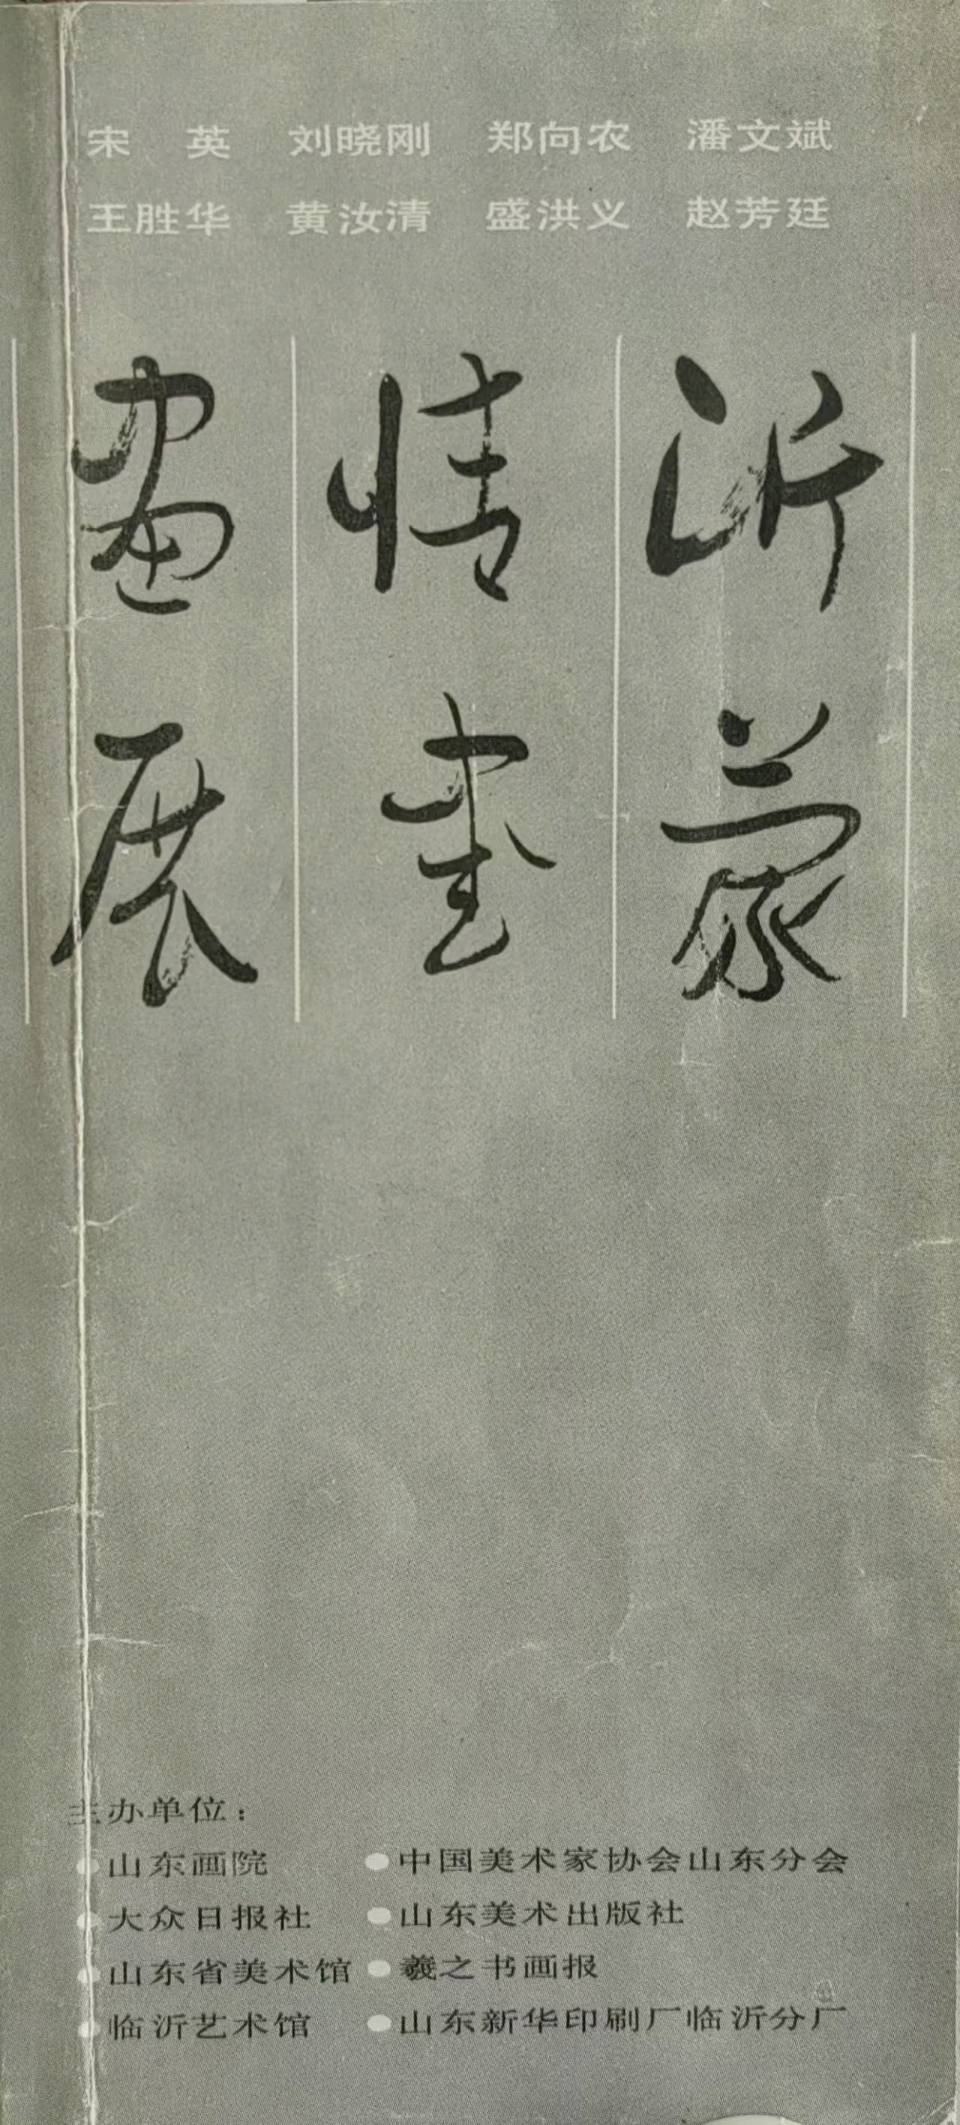 宋 英 刘晓刚 郑向农 潘文斌
王胜华 黄汝清 盛洪义 赵芳廷
沂蒙
情书
画展
主办单位：
山东画院 中国美术家协会山东分会
大众日报社 山东美术出版社
山东省美术馆 羲之书画报
临沂艺术馆 山东新华印刷厂临沂分厂